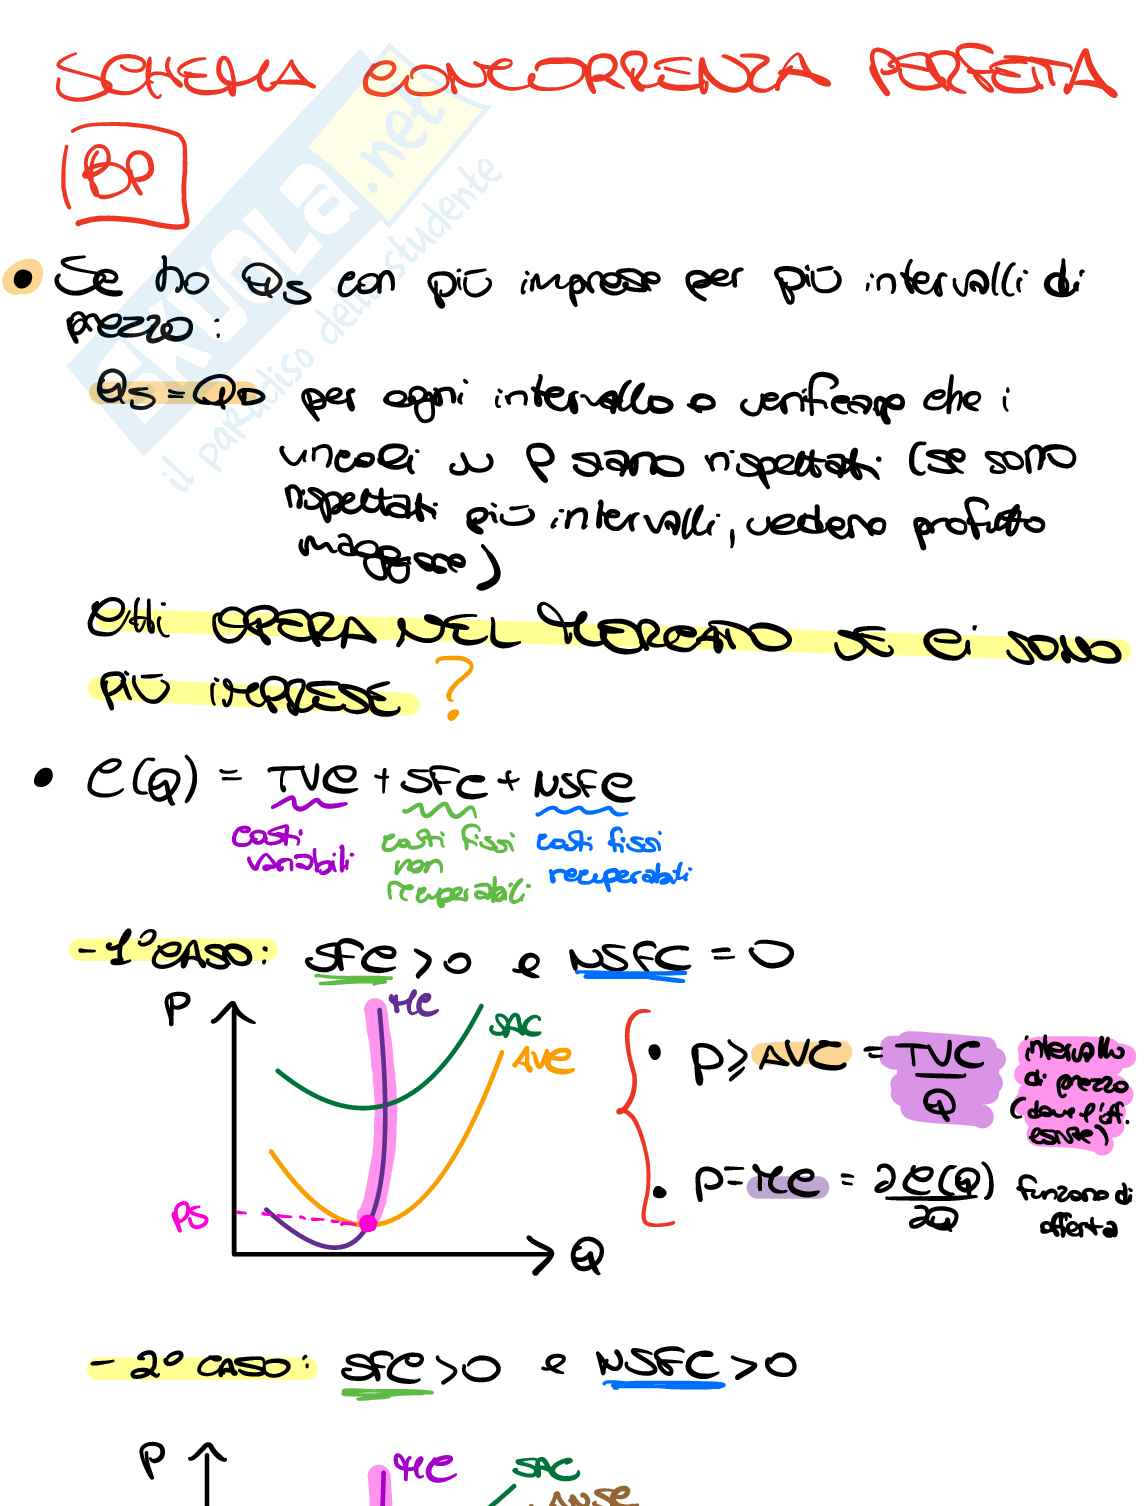 SCHEMA CONCORRENZA PERFETTA
BP
• Se ho Qs con più imprese per più intervalli di
prezzo:
Qs = QD per ogni intervallo e verificare che i
vincoli su P siano rispettati (se sono
rispettati più intervalli, vedere profitto
maggiore)
CHI OPERA NEL MERCATO SE CI SONO
PIÙ IMPRESE ?
• C(Q) = TVC + SFC + NSFC
costi variabili
costi fissi non recuperabili
costi fissi recuperabili
- 1° CASO: SFC > 0 e NSFC = 0
P
MC
SAC
AVC
PS
Q
• P ≥ AVC = TVC / Q
intervallo di prezzo (dove l'off. esiste)
• P = MC = ∂C(Q) / ∂Q
funzione di offerta
- 2° CASO: SFC > 0 e NSFC > 0
P
MC
SAC
SKUOLA.net
il paradiso dello studente